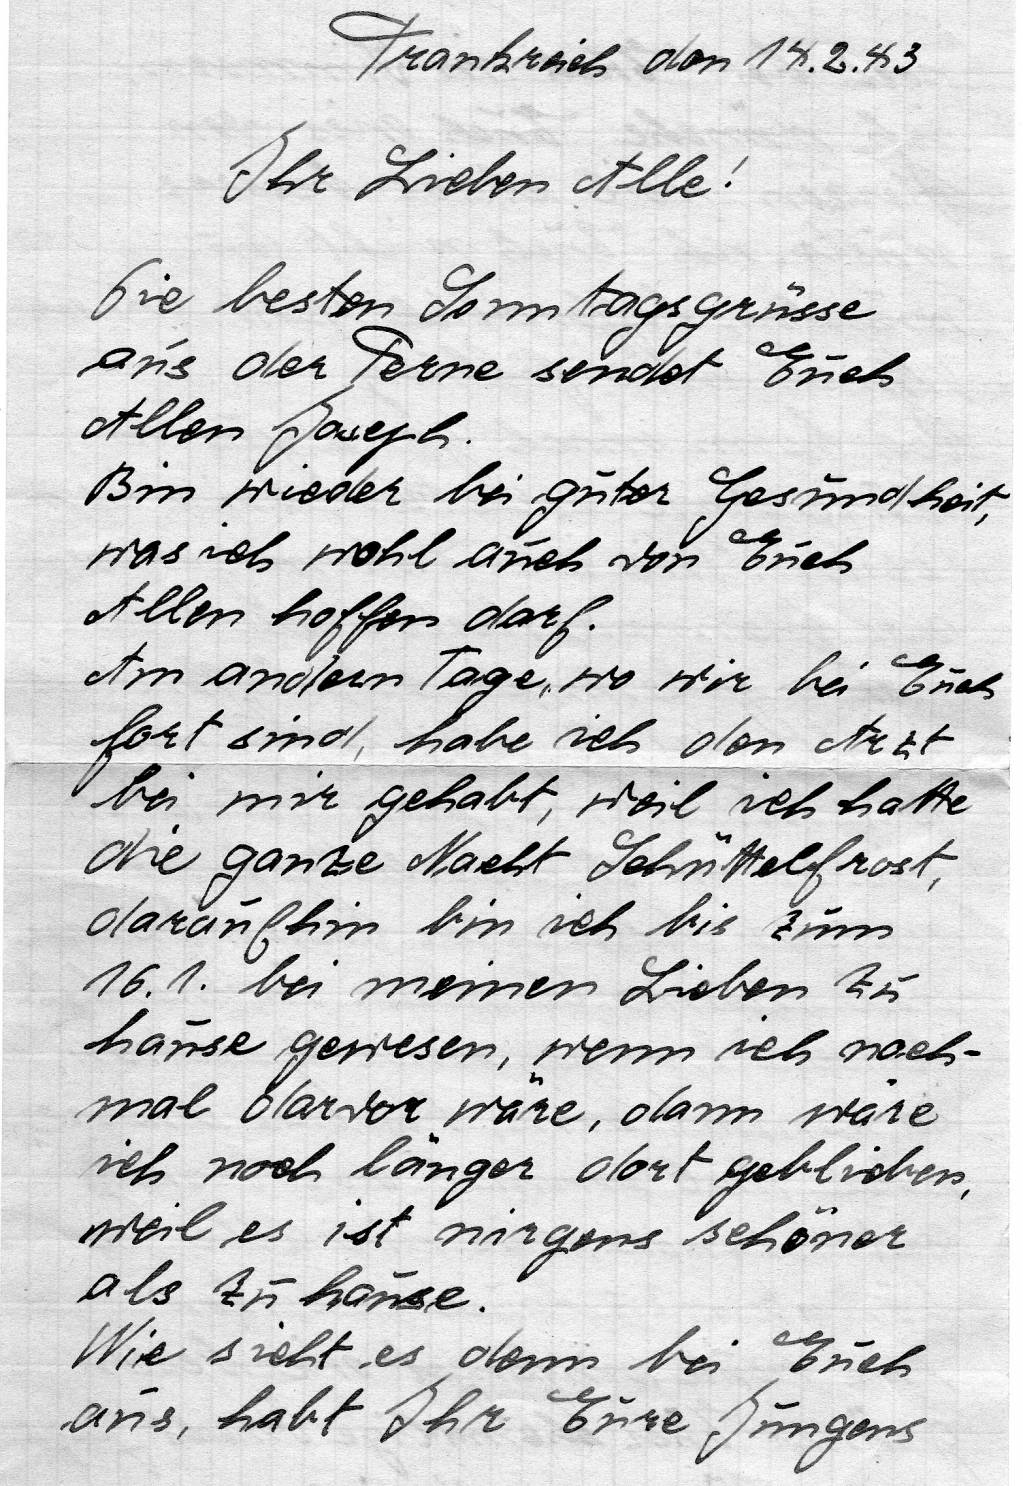 Frankreich den 14.2.43
Ihr Lieben Alle!
Die besten Sonntagsgrüsse
aus der Ferne sendet Euch
Allen Joseph.
Bin wieder bei guter Gesundheit,
was ich wohl auch von Euch
Allen hoffen darf.
Am andern Tage, wo wir bei Euch
fort sind, habe ich den Arzt
bei mir gehabt, weil ich hatte
die ganze Nacht Schüttelfrost,
daraufhin bin ich bis zum
16.1. bei meinen Lieben zu
hause gewesen, wenn ich noch-
mal darvor wäre, dann wäre
ich noch länger dort geblieben,
weil es ist nirgens schöner
als zu hause.
Wie sieht es denn bei Euch
aus, habt Ihr Eure Jungens